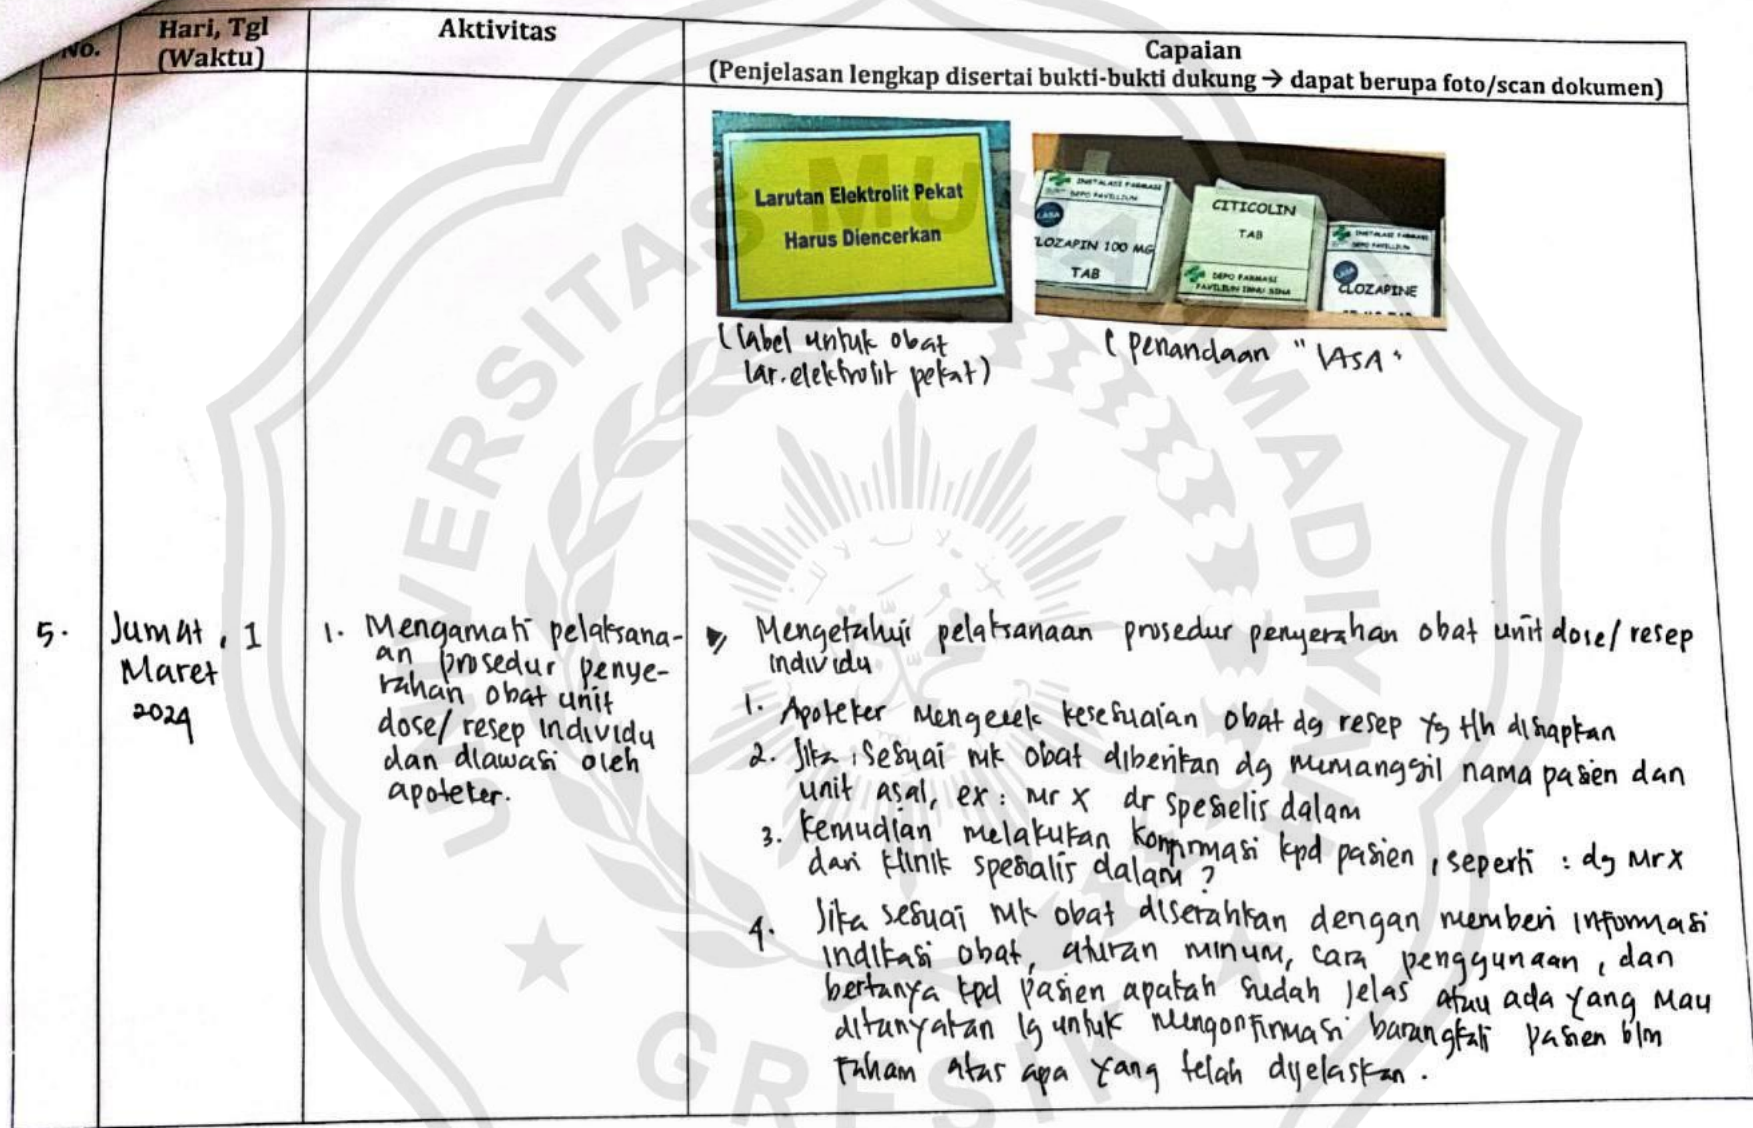 No.
Hari, Tgl
(Waktu)
Aktivitas
Capaian
(Penjelasan lengkap disertai bukti-bukti dukung → dapat berupa foto/scan dokumen)
Larutan Elektrolit Pekat
Harus Diencerkan
INSTALASI FARMASI
DEPO PAVILLIUN
LASA
CLOZAPIN 100 MG
TAB
CITICOLIN
TAB
DEPO FARMASI
PAVILIUN IBNU SINA
INSTALASI FARMASI
DEPO PAVILLIUN
LASA
CLOZAPINE
(label untuk obat
lar. elektrolit pekat)
( penandaan " LASA "
5.
Jumat, 1
Maret
2024
1. Mengamati pelaksana-
an prosedur penye-
rahan obat unit
dose/ resep individu
dan diawasi oleh
apoteker.
Mengetahui pelaksanaan prosedur penyerahan obat unit dose/ resep
individu
1. Apoteker mengecek kesesuaian obat dg resep yg tlh disiapkan
2. Jika sesuai mk obat diberikan dg memanggil nama pasien dan
unit asal, ex : Mr X dr spesielis dalam
3. Kemudian melakukan konfirmasi kpd pasien, seperti : dg Mr X
dari klinik spesialis dalam ?
4. Jika sesuai mk obat diserahkan dengan memberi informasi
indikasi obat, aturan minum, cara penggunaan, dan
bertanya kpd pasien apakah sudah jelas atau ada yang mau
ditanyakan lg untuk mengonfirmasi barangkali pasien blm
faham atas apa yang telah dijelaskan.
UNIVERSITAS MUHAMMADIYAH
GRESIK